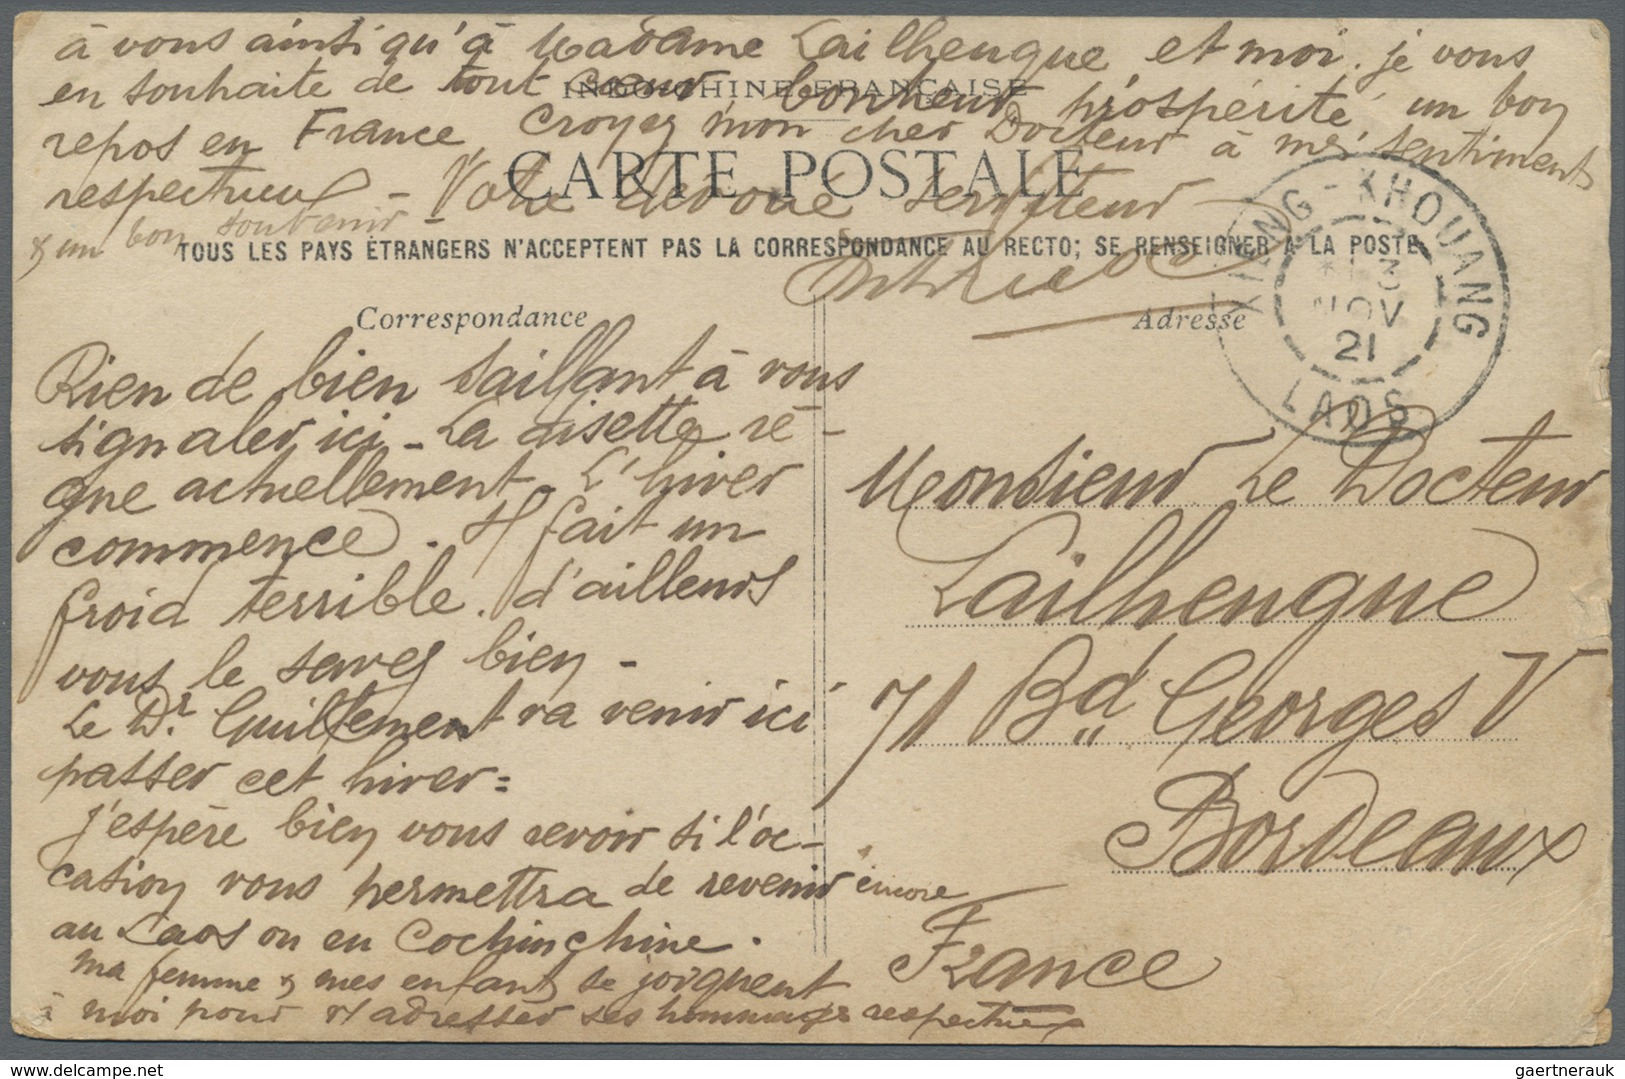 à vous ainsi qu'à Madame Lailhengue, et moi. je vous
en souhaite de tout cœur bonheur, prospérité un bon
INDOCHINE FRANÇAISE
repos en France, Croyez mon cher Docteur à mes sentiments
CARTE POSTALE
respectueux - Votre dévoué serviteur
& un bon souvenir
TOUS LES PAYS ÉTRANGERS N'ACCEPTENT PAS LA CORRESPONDANCE AU RECTO; SE RENSEIGNER A LA POSTE
XIENG-KHOUANG
3
NOV
21
LAOS
Correspondance
Adresse
Rien de bien saillant à vous
signaler, ici - La disette rè-
gne actuellement - L'hiver
commence. Il fait un
froid terrible. d'ailleurs
vous le savez bien -
Le Dr. Guillement va venir ici
passer cet hiver =
J'espère bien vous revoir si l'oc-
casion vous permettra de revenir encore
au Laos ou en Cochinchine.
ma femme & mes enfants se joignent
à moi pour d'adresser ses hommages respectueux
Monsieur Le Docteur
Lailhengue
71 Bd Georges V
Bordeaux
France
© www.delcampe.net
gaertnerauk